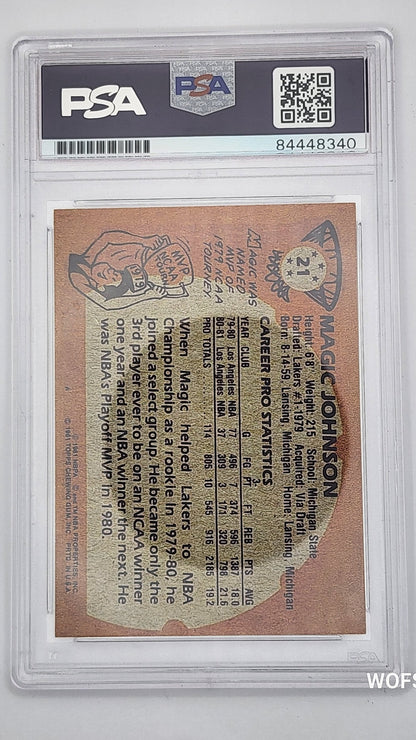 PSA
PSA
84448340
21
MAGIC JOHNSON
Height: 6'8" Weight: 215 School: Michigan State
Drafted: Lakers #1-1979 Acquired: Via Draft
Born: 8-14-59, Lansing, Michigan Home: Lansing, Michigan
CAREER PRO STATISTICS
3-
YEAR CLUB G FG PT FT REB PTS AVG
79-80 Los Angeles NBA 77 496 7 374 596 1387 18.0
80-81 Los Angeles NBA 37 309 3 171 320 798 21.6
PRO TOTALS 114 805 10 545 916 2185 19.2
MAGIC WAS
NAMED
MVP OF
1979 NCAA
TOURNEY
MVP
NCAA
1979
When Magic helped Lakers to NBA
Championship as a rookie in 1979-80, he
joined a select group. He became only the
3rd player ever to be on an NCAA winner
one year and an NBA winner the next. He
was NBA's Playoff MVP in 1980.
© 1981 NBAP, © and TM NBA PROPERTIES, INC.
© 1981 TOPPS CHEWING GUM, INC. PRTD. IN U.S.A.
PSA
WOFS